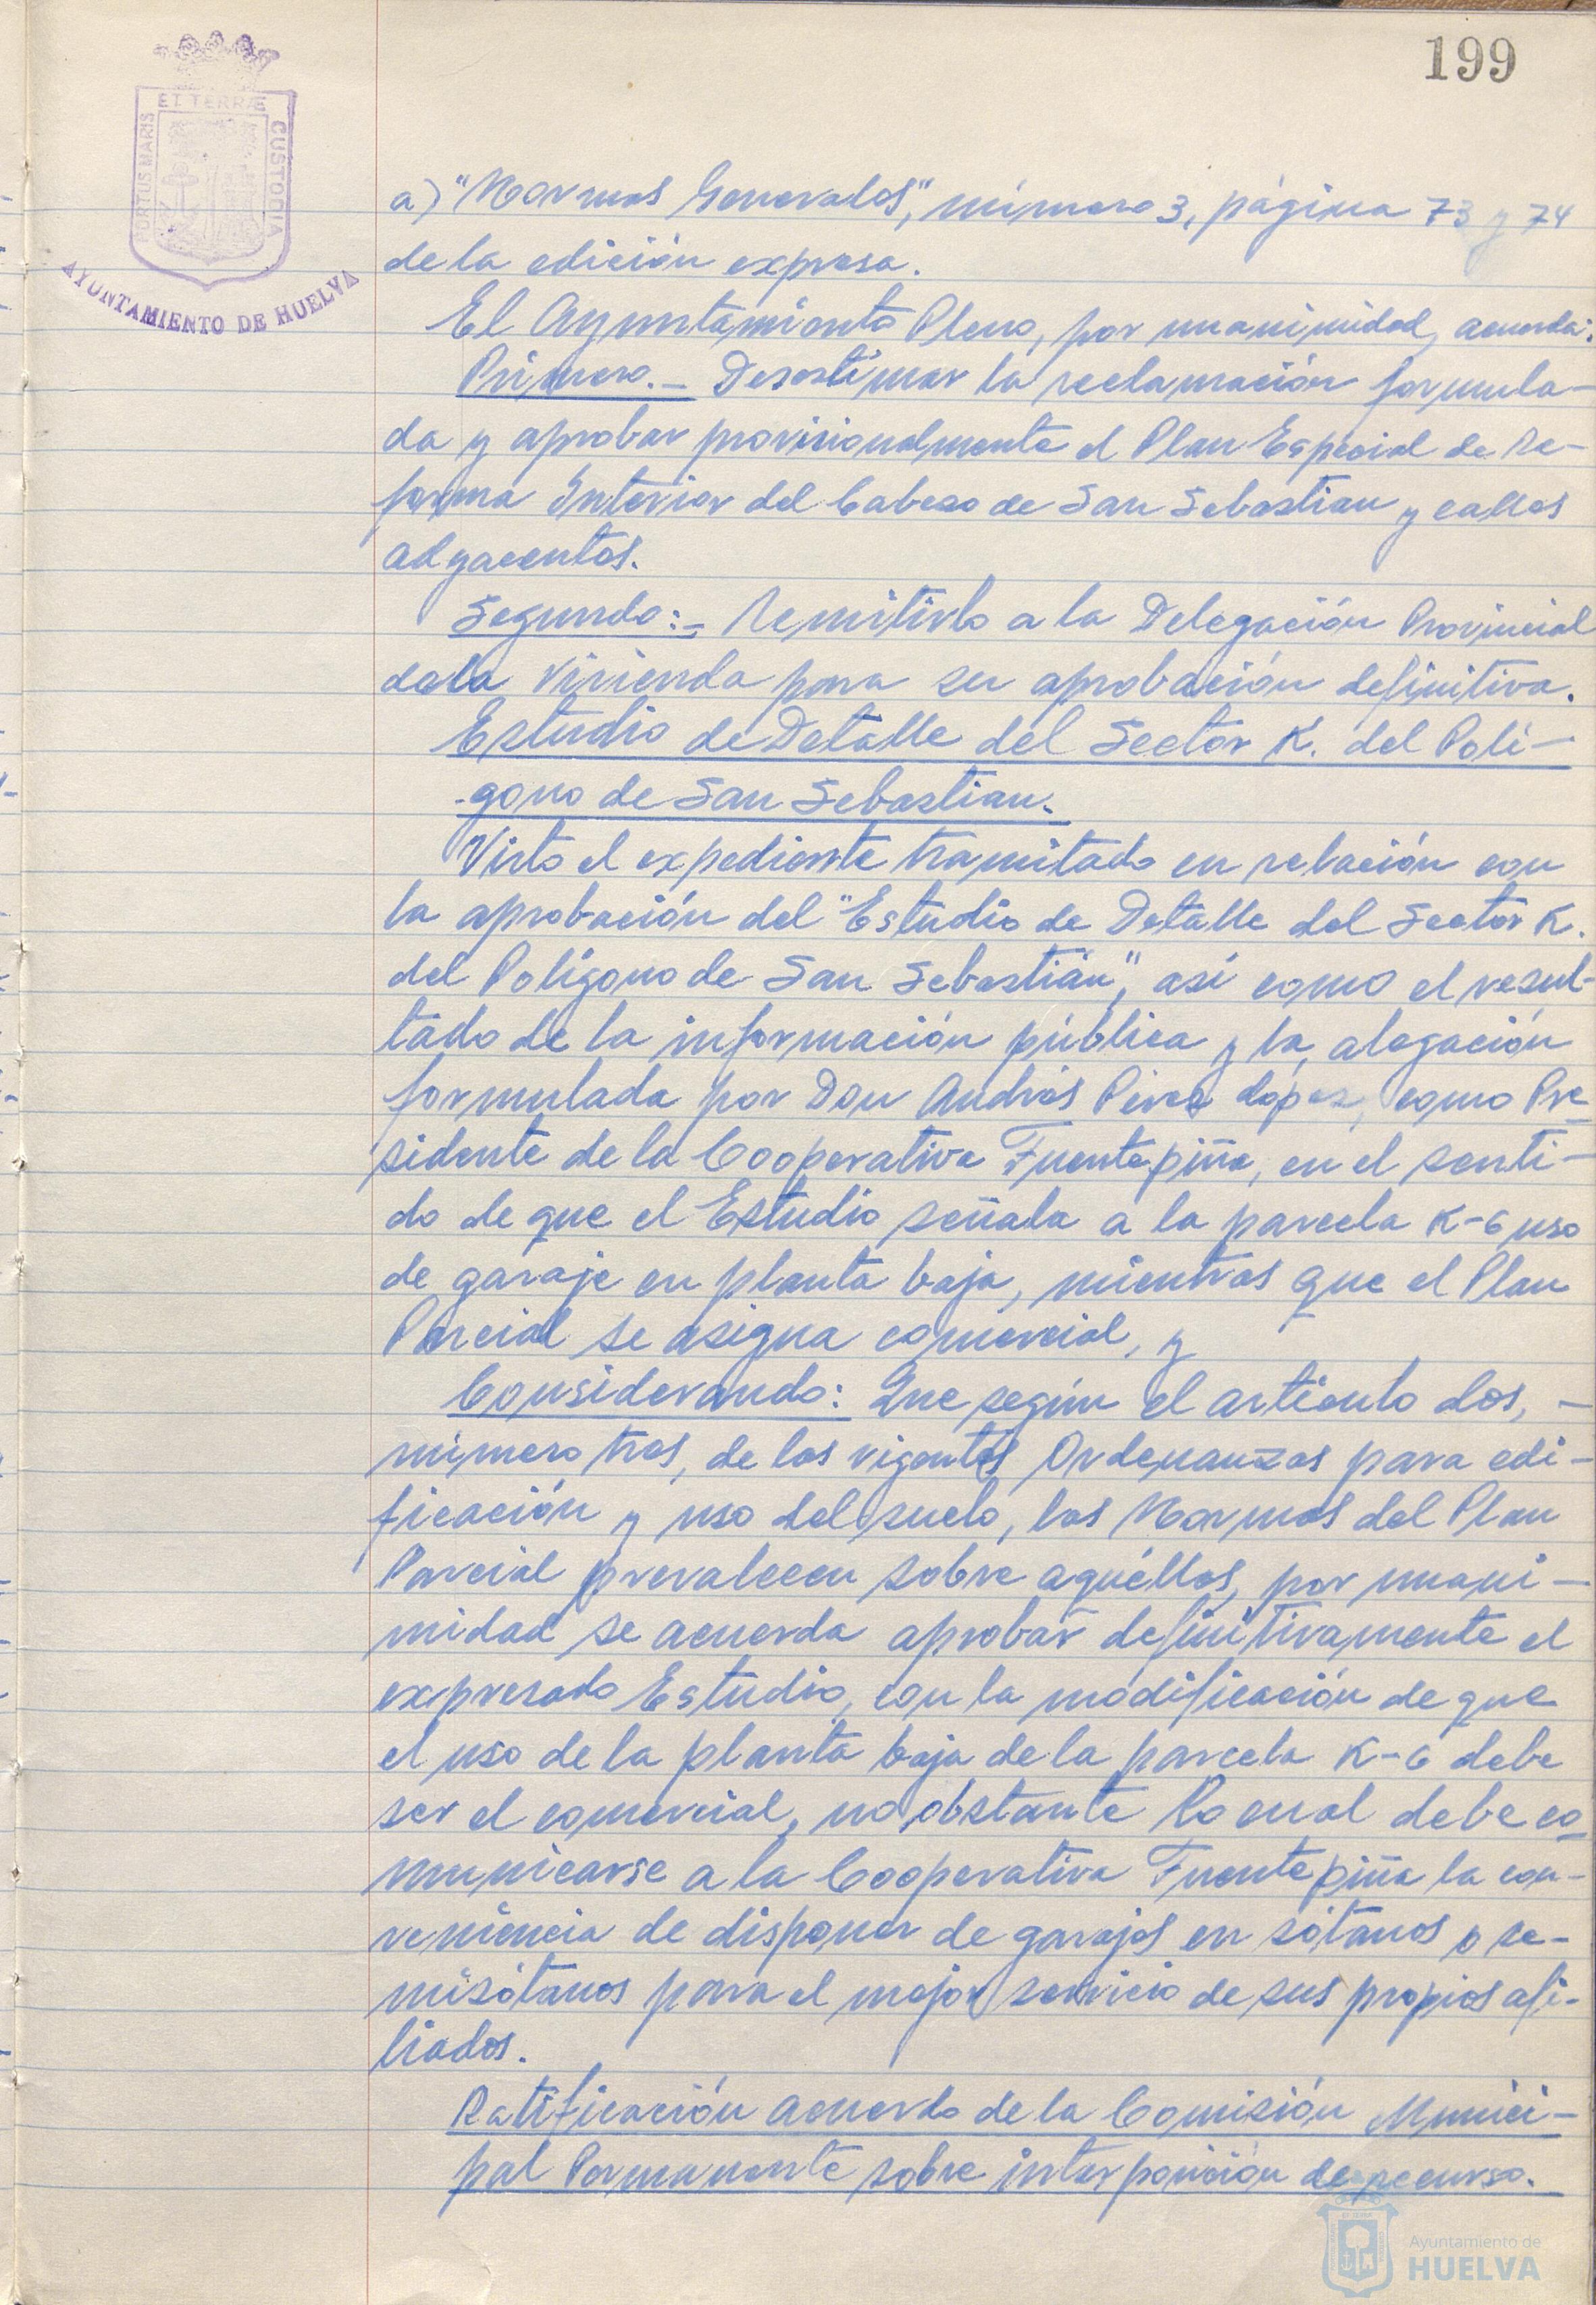 199
ET TERRÆ
PORTUS MARIS
CUSTODIA
AYUNTAMIENTO DE HUELVA
a) "Normas Generales", número 3, página 73 y 74
de la edición expresa.
El Ayuntamiento Pleno, por unanimidad, acuerda:
Primero.- Desestimar la reclamación formula-
da y aprobar provisionalmente el Plan Especial de Re-
forma Interior del Cabezo de San Sebastian y calles
adyacentes.
Segundo:- Remitirlo a la Delegación Provincial
de la Vivienda para su aprobación definitiva.
Estudio de Detalle del Sector K. del Polí-
gono de San Sebastian.
Visto el expediente tramitado en relación con
la aprobación del "Estudio de Detalle del Sector K.
del Polígono de San Sebastián", así como el resul-
tado de la información pública y la alegación
formulada por Don Andrés Pérez López, como Pre-
sidente de la Cooperativa Fuentepiña, en el senti-
do de que el Estudio señala a la parcela K-6 uso
de garaje en planta baja, mientras que el Plan
Parcial se asigna comercial, y
Considerando: Que según el artículo dos, -
número tres, de las vigentes Ordenanzas para edi-
ficación y uso del suelo, las Normas del Plan
Parcial prevalecen sobre aquéllas, por unani-
midad se acuerda aprobar definitivamente el
expresado Estudio, con la modificación de que
el uso de la planta baja de la parcela K-6 debe
ser el comercial, no obstante lo cual debe co-
municarse a la Cooperativa Fuentepiña la con-
veniencia de disponer de garajes en sótanos o se-
misótanos para el mejor servicio de sus propios afi-
liados.
Ratificación acuerdo de la Comisión Munici-
pal Permanente sobre interposición de recurso.
Ayuntamiento de
HUELVA